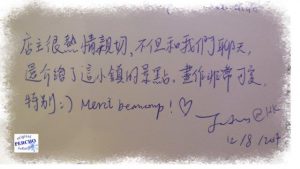 店主很熱情親切，不但和我們聊天，
還介紹了這小鎮的景點，畫作非常可愛，
特別:) Merci beaucoup! ♡
@HK
PERCHO
12/8/2017